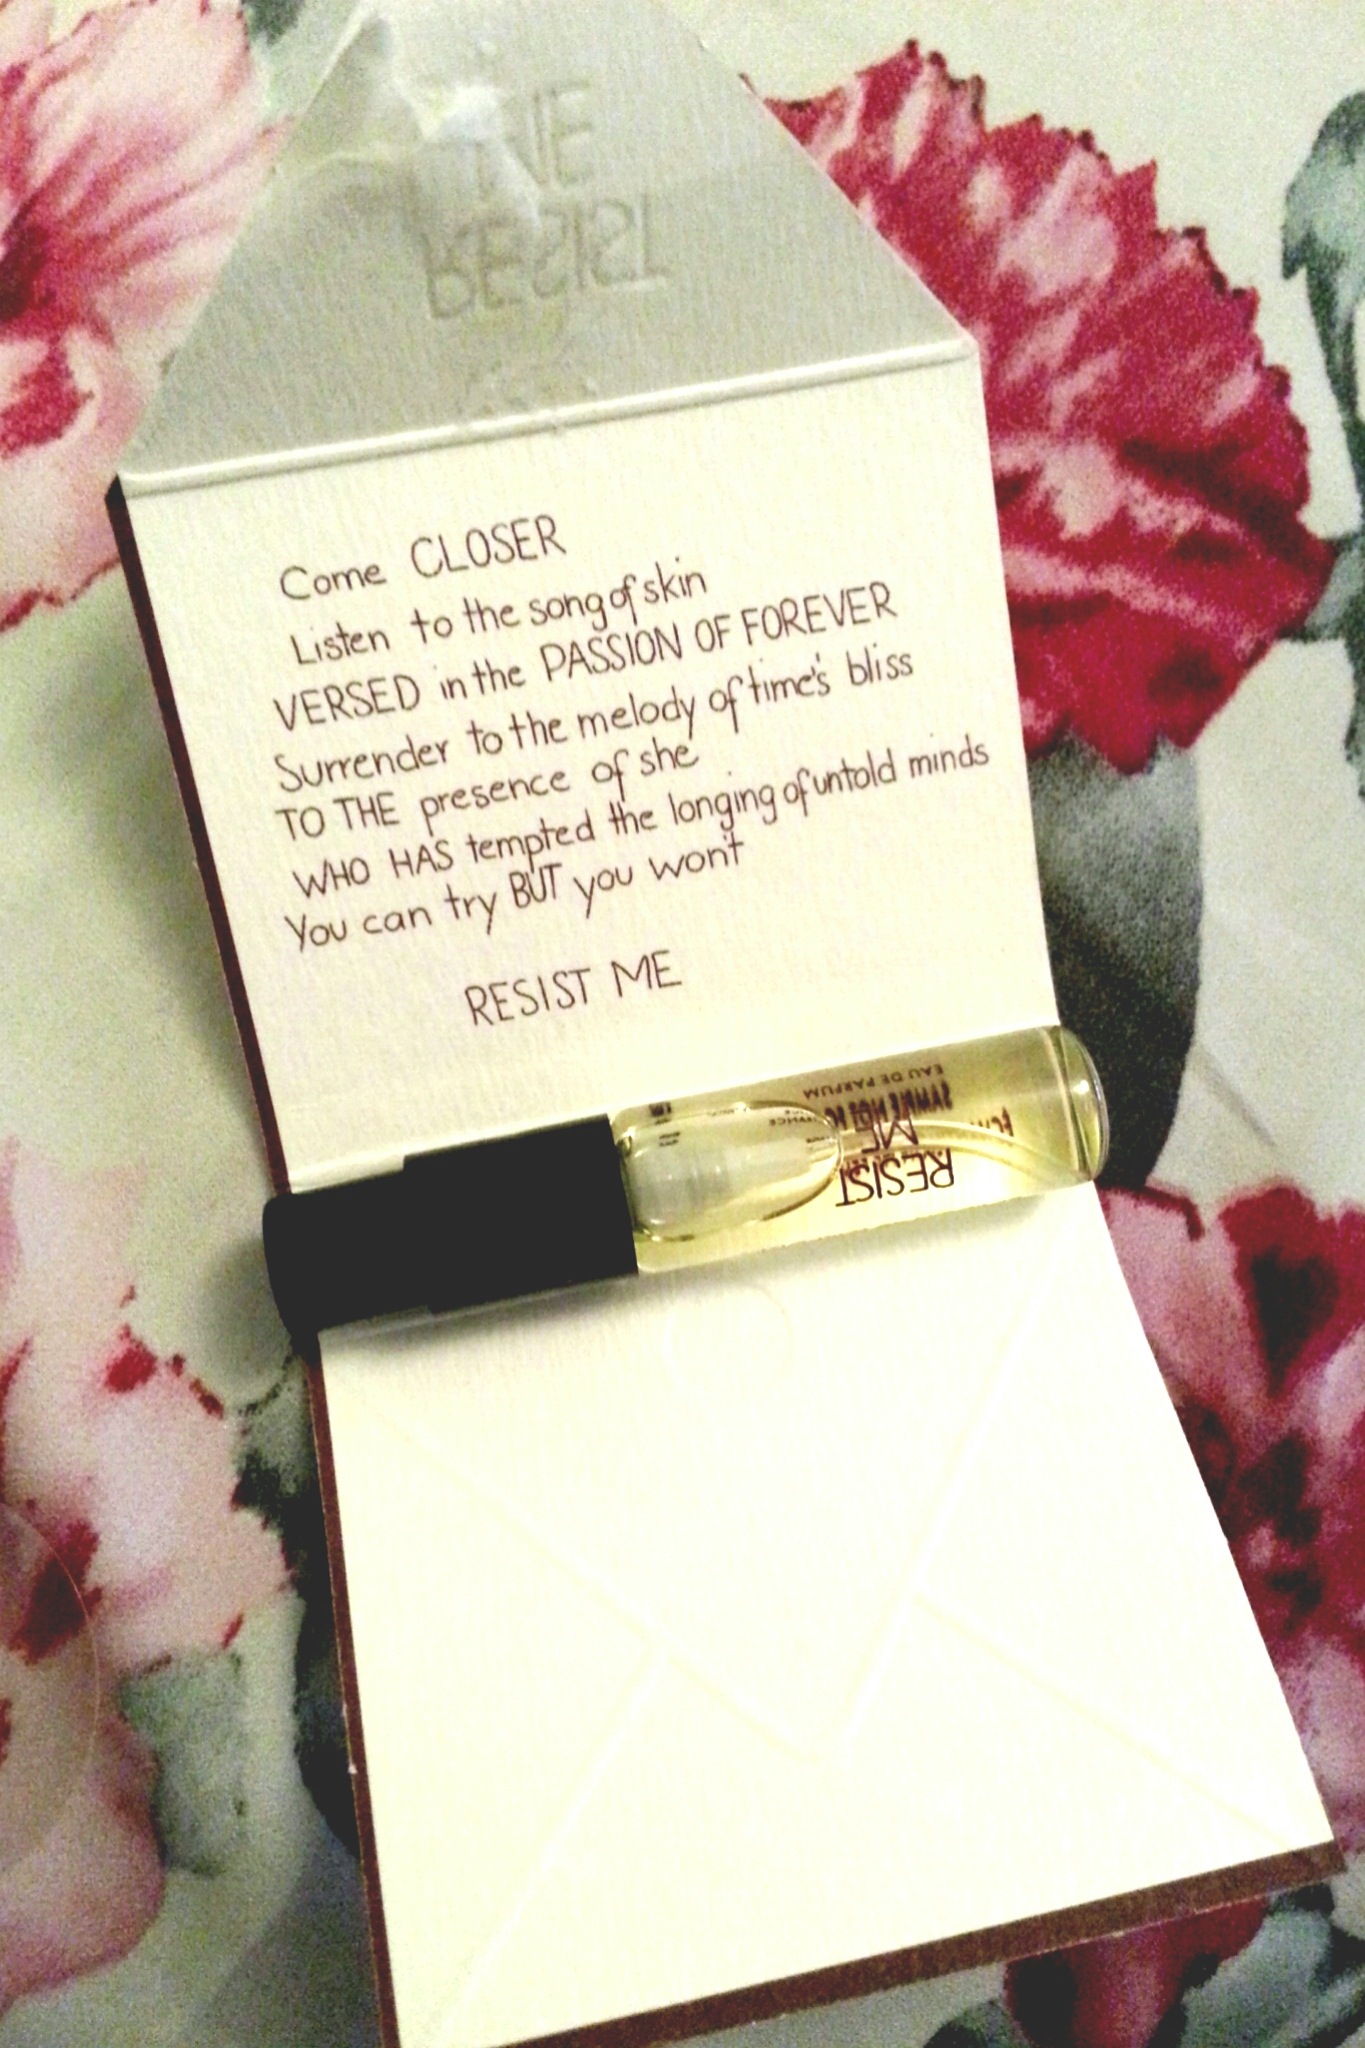 RESIST
ME
Come CLOSER
Listen to the song of skin
VERSED in the PASSION OF FOREVER
Surrender to the melody of time's bliss
TO THE presence of she
WHO HAS tempted the longing of untold minds
You can try BUT you won't
RESIST ME
RESIST
ME
EAU DE PARFUM